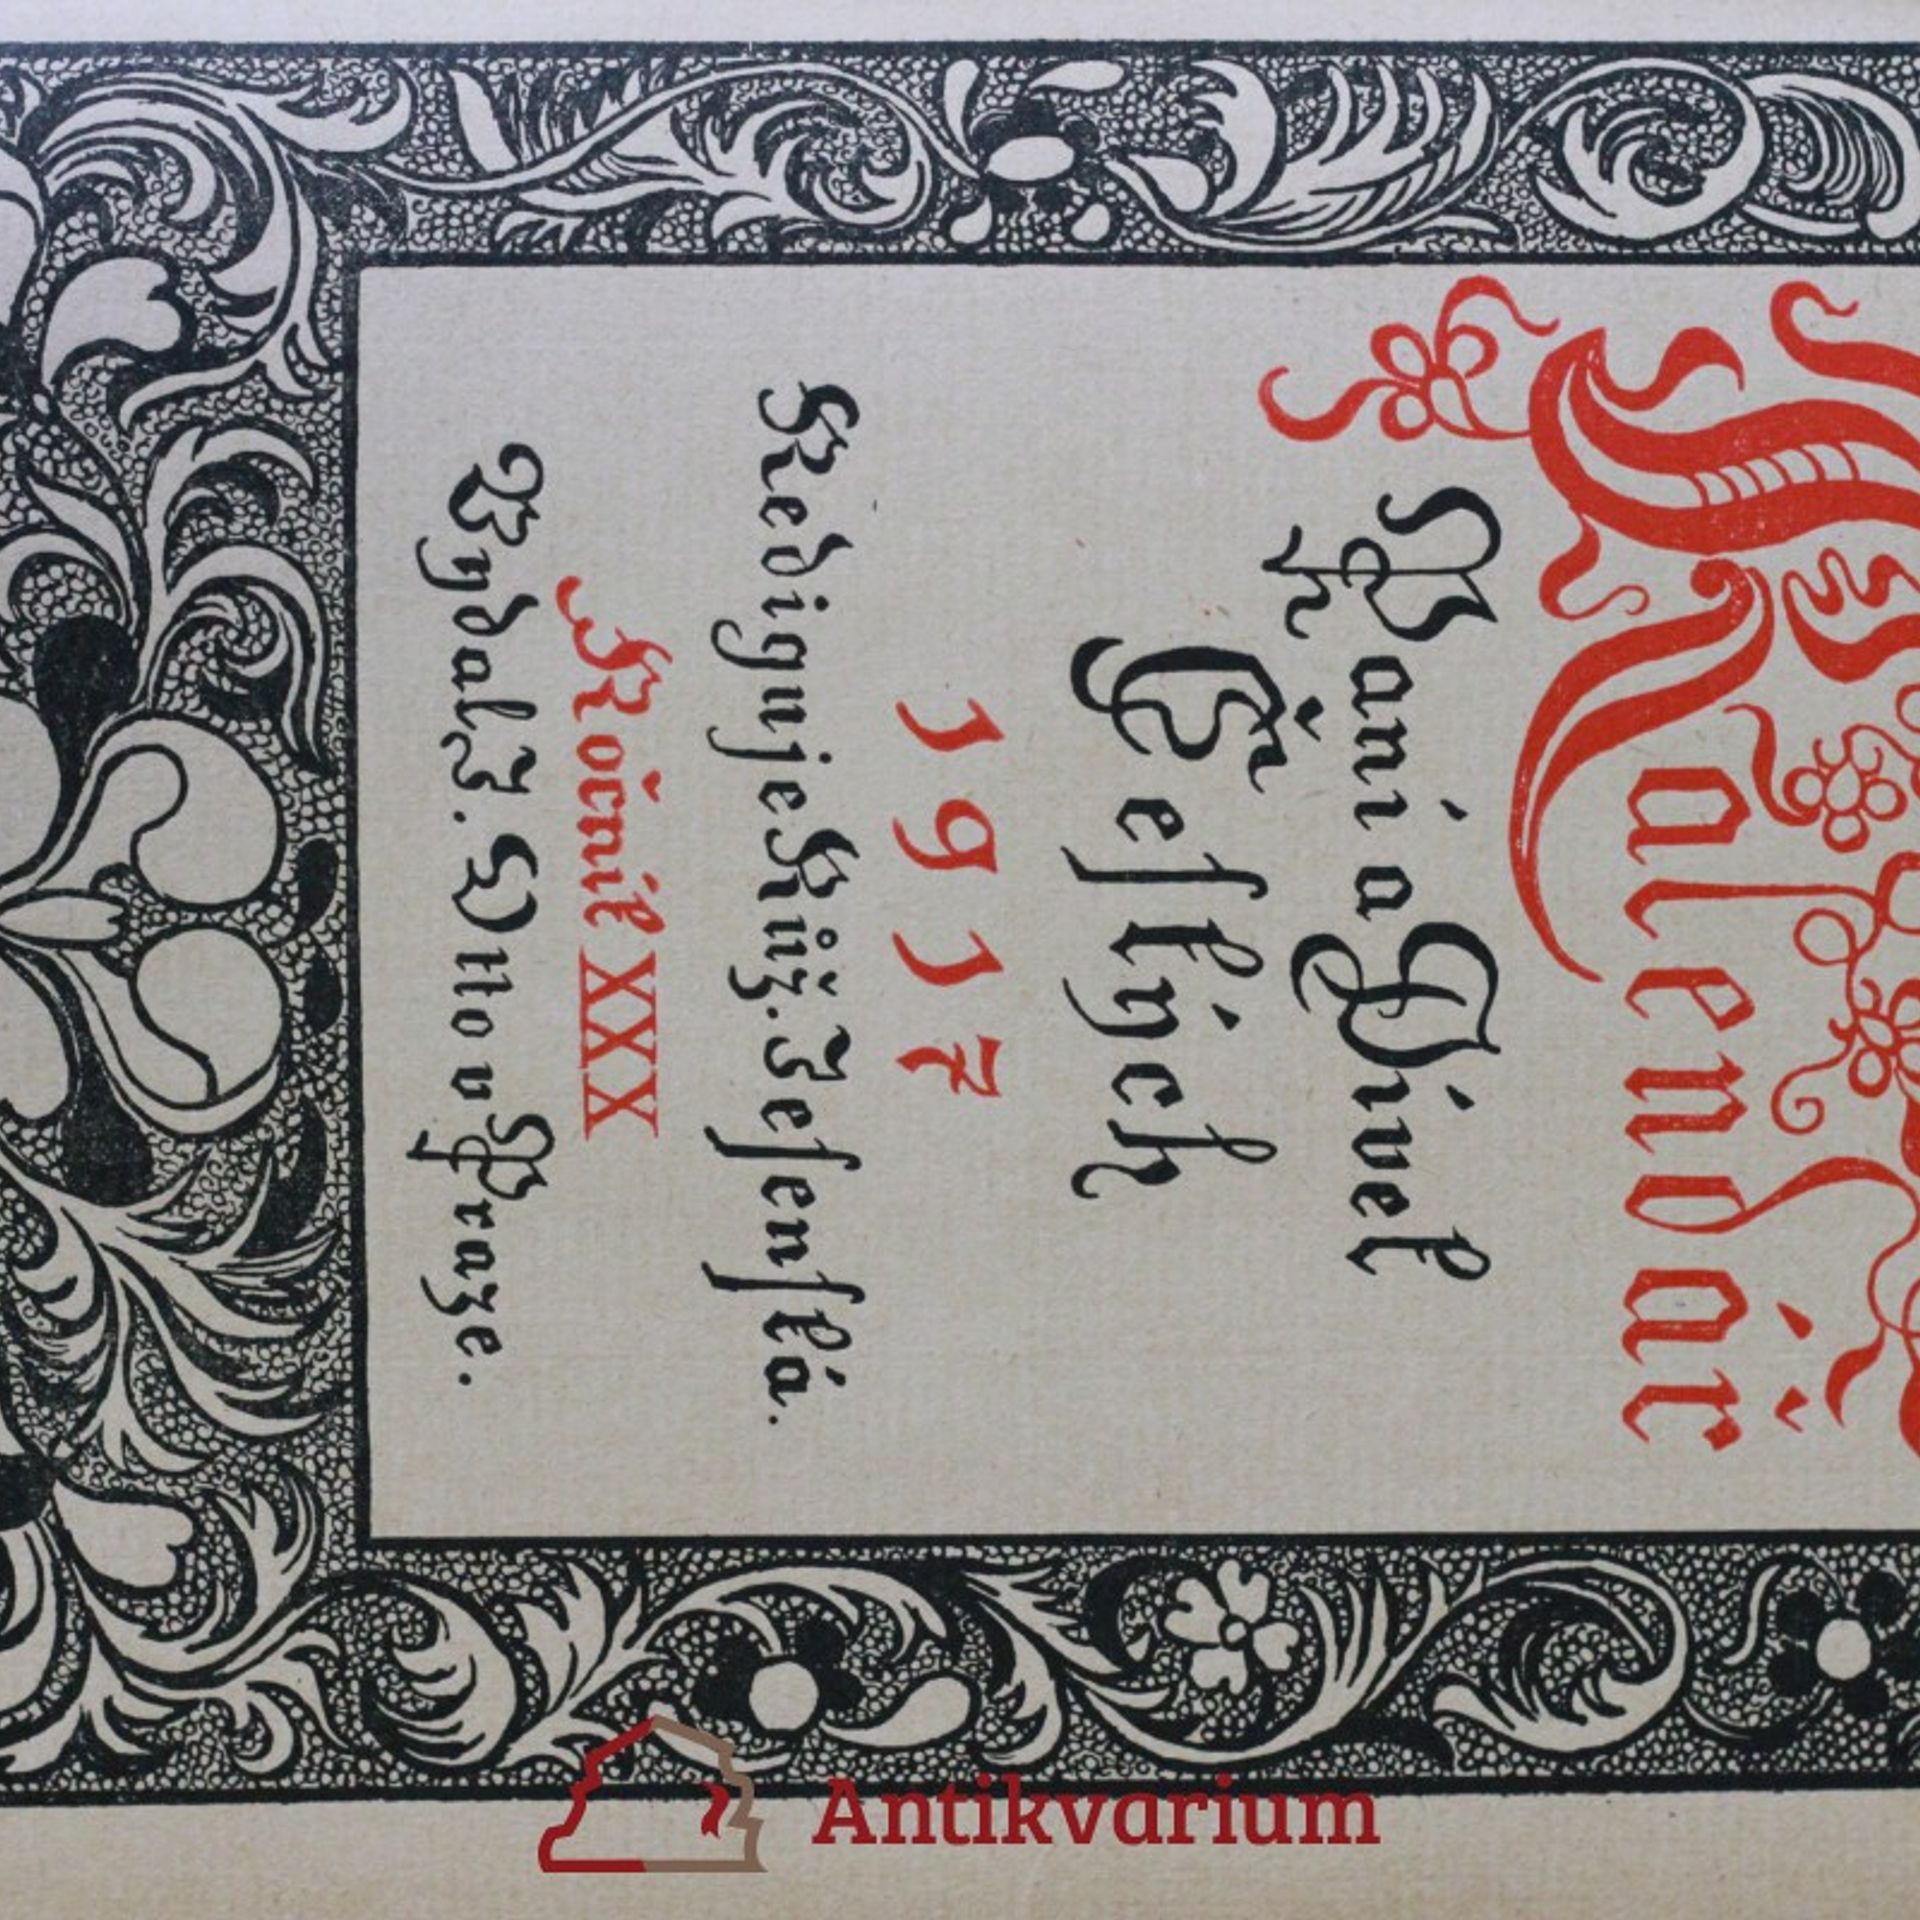 Kalendář
Paní a Dívek
Českých
1917
Rediguje Růž. Jesenská.
Ročník XXX
Vydal J. Otto v Praze.
Antikvarium